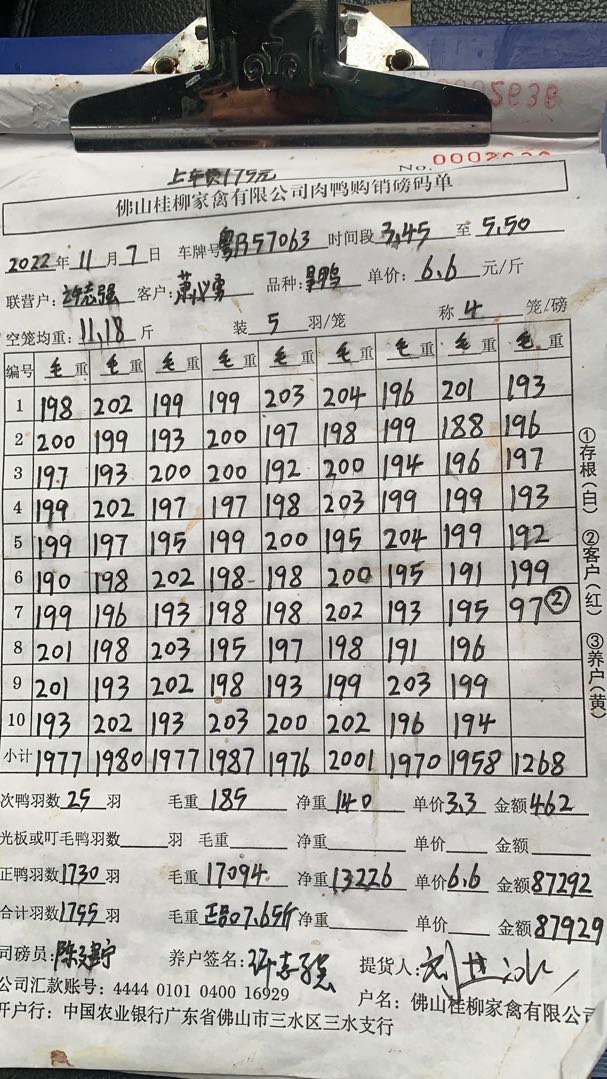 0002936
上车费175元
No. 0002
佛山桂柳家禽有限公司肉鸭购销磅码单
2022年 11 月 7 日 车牌号 粤B57063 时间段 3.45 至 5.50
联营户: 许志强 客户: 萧义勇 品种: 单价: 6.6 元/斤
空笼均重: 11.18 斤 装 5 羽/笼 称 4 笼/磅
编号 毛重 毛重 毛重 毛重 毛重 毛重 毛重 毛重 毛重
1 198 202 199 199 203 204 196 201 193
2 200 199 193 200 197 198 199 188 196
3 197 193 200 200 192 200 194 196 197
4 199 202 197 197 198 203 199 199 193
5 199 197 195 199 200 195 204 199 192
6 190 198 202 198 198 200 195 191 199
7 199 196 193 198 198 202 193 195 97②
8 201 198 203 195 197 198 191 196
9 201 193 202 198 193 199 203 199
10 193 202 193 203 200 202 196 194
小计 1977 1980 1977 1987 1976 2001 1970 1958 1268
①存根(白) ②客户(红) ③养户(黄
次鸭羽数 25 羽 毛重 185 净重 140 单价 3.3 金额 462
光板或叮毛鸭羽数 羽 毛重 净重 单价 金额
正鸭羽数 1730 羽 毛重 17094 净重 13226 单价 6.6 金额 87292
合计羽数 1755 羽 毛重 7.65斤 净重 单价 金额 87929
司磅员: 陈建宁 养户签名: 许志强 提货人:
公司汇款账号: 4444 0101 0400 16929 户名: 佛山桂柳家禽有限公司
开户行: 中国农业银行广东省佛山市三水区三水支行